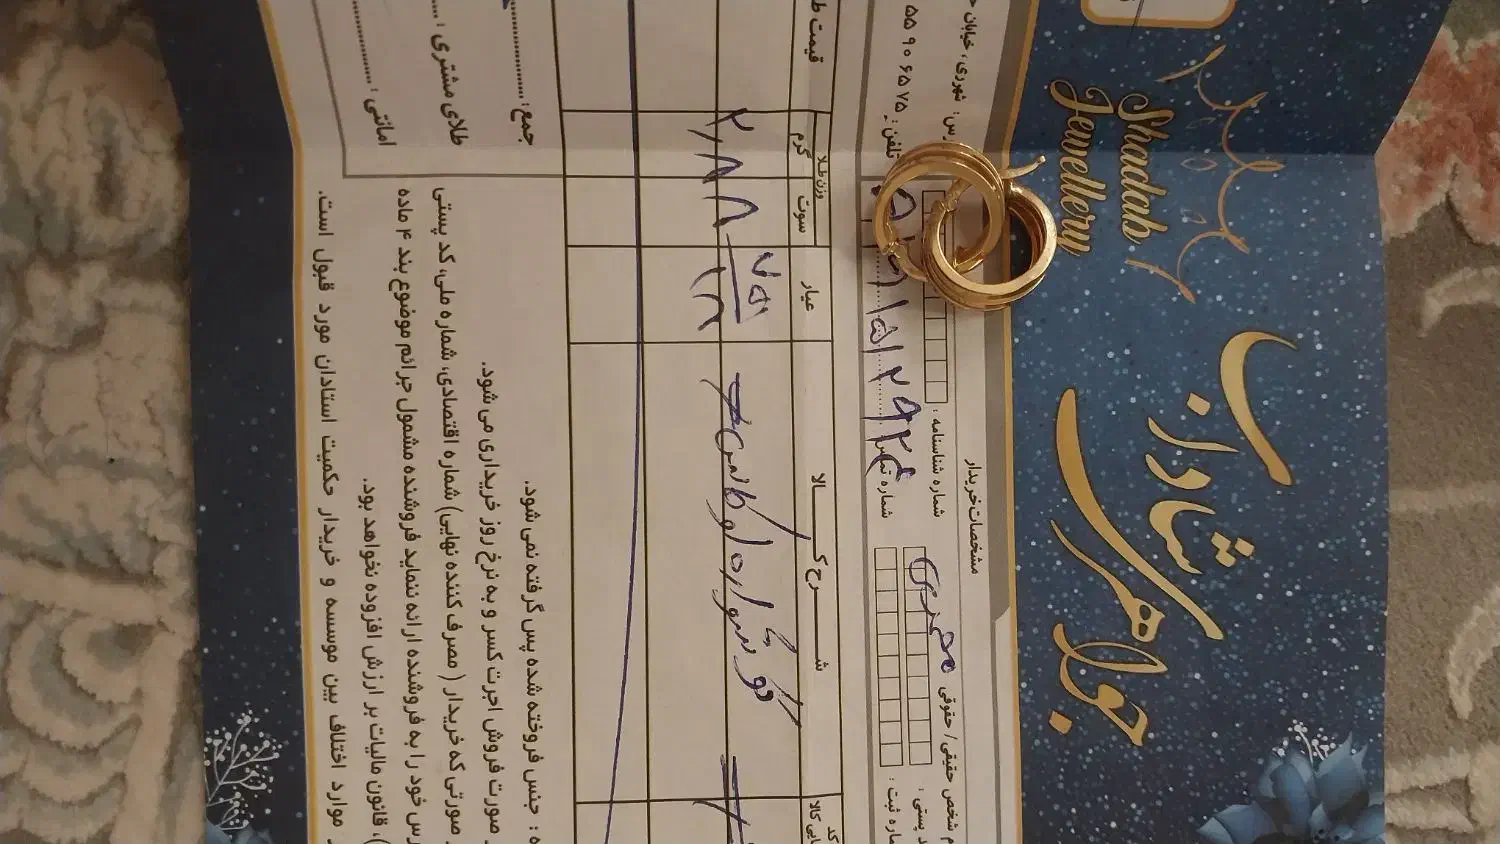 جواهری شادراب
Shadab
Jewellery
شهرری، خیابان
تلفن: ۵۵۹۰۶۵۷۵
مشخصات خریدار
شخص حقیقی / حقوقی
شماره شناسنامه :
پستی :
ثبت :
شرح کالا
عیار
وزن طلا
سوت
گرم
قیمت
کد
کالا
گوشواره
۷۵۰
۱۸
جمع:
طلای مشتری :
امانتی :
: جنس فروخته شده پس گرفته نمی شود.
صورت فروش اجرت کسر و به نرخ روز خریداری می شود.
صورتی که خریدار ( مصرف کننده نهایی) شماره اقتصادی، شماره ملی، کد پستی
خود را به فروشنده ارائه ننماید فروشنده مشمول جرائم موضوع بند ۴ ماده
قانون مالیات بر ارزش افزوده نخواهد بود.
موارد اختلاف بین موسسه و خریدار حکمیت استادان مورد قبول است.